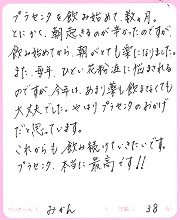 プラセンタを飲み始めて、数ヶ月。
とにかく、朝起きるのが辛かったのですが、
飲み始めてから、朝がとても楽になりました。
また、毎年、ひどい花粉症に悩まされる
のですが、今年は、あまり薬も飲まなくても
大丈夫でした。やはりプラセンタのおかげ
だと思っています。
これからも飲み続けていきたいです。
プラセンタ、本当に最高です!!
ペンネーム( みかん ) 年齢( 38 歳)